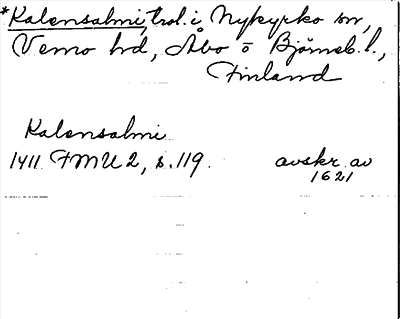 *Kalensalmi, trol. i Nykyrko sn,
Vemo hd, Åbo o Björneb. l.,
Finland
Kalensalmi
1411 FMU 2, s. 119. avskr. av
1621